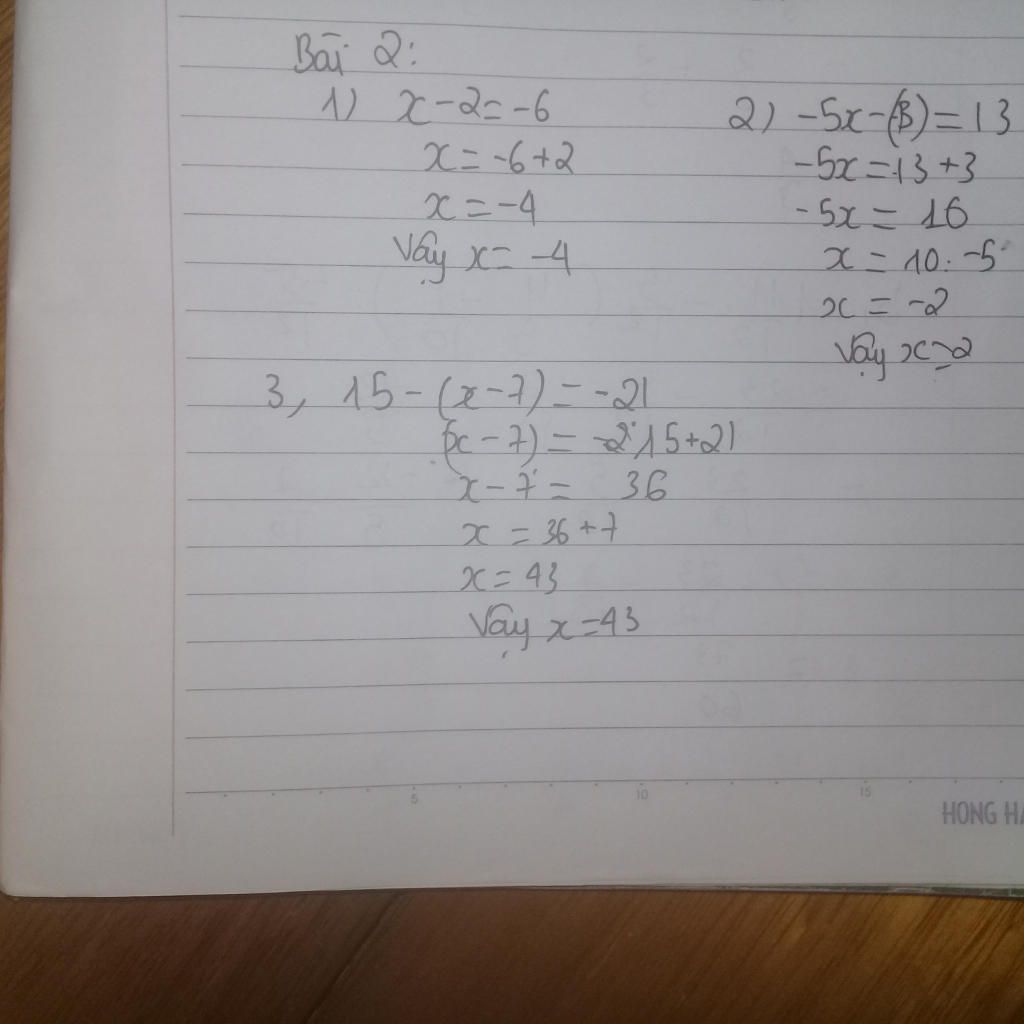 Bài 2:
1) x - 2 = -6
x = -6 + 2
x = -4
Vậy x = -4
2) -5x - (-3) = 13
-5x = 13 + 3
-5x = 16
x = 10 : -5
x = -2
Vậy x = -2
3, 15 - (x - 7) = -21
(x - 7) = 15 + 21
x - 7 = 36
x = 36 + 7
x = 43
Vậy x = 43
5 10 15
HONG HA